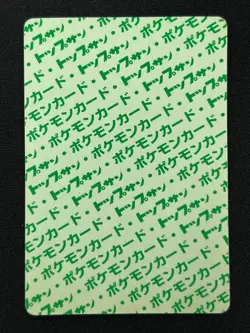 ポケモンカード・トップサン・
ポケモンカード・トップサン・
ポケモンカード・トップサン・
ポケモンカード・トップサン・
ポケモンカード・トップサン・
ポケモンカード・トップサン・
ポケモンカード・トップサン・
ポケモンカード・トップサン・
ポケモンカード・トップサン・
ポケモンカード・トップサン・
ポケモンカード・トップサン・
ポケモンカード・トップサン・